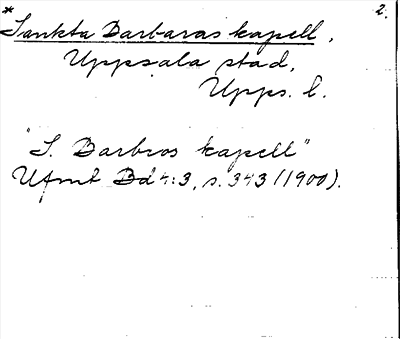 * Sankta Barbaras kapell, 2.
Uppsala stad,
Upps. l.
"S. Barbros kapell"
Ufmt Bd 4:3, s. 343 (1900).